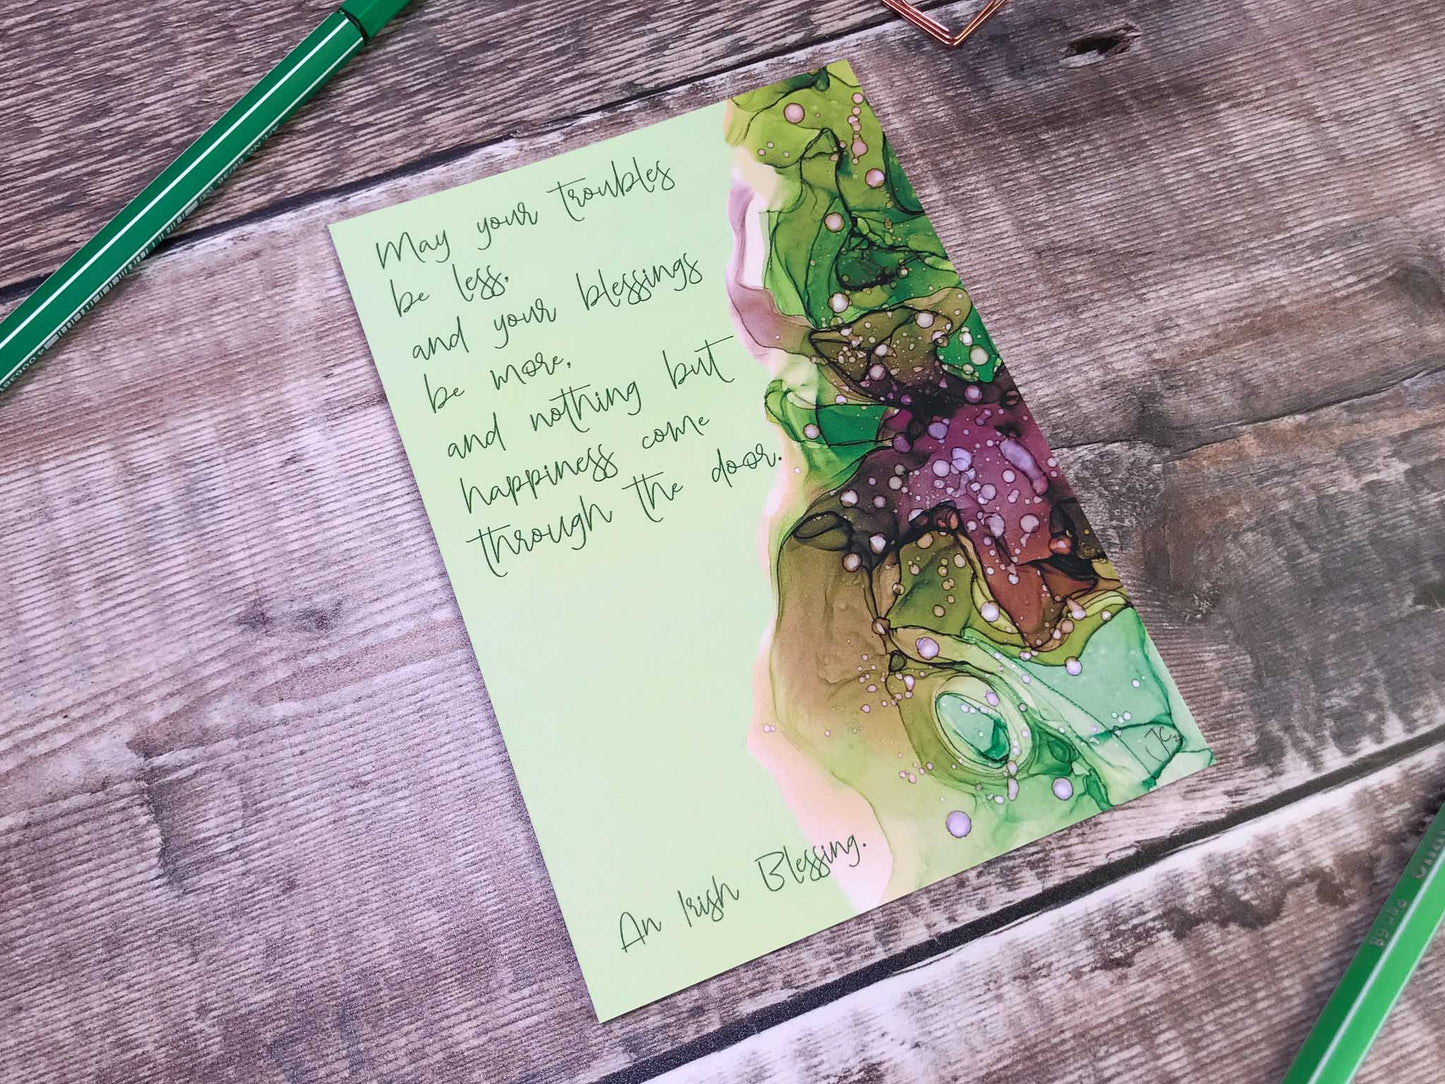 May your troubles
be less,
and your blessings
be more,
and nothing but
happiness come
through the door.
An Irish Blessing.
JC
Pen 68